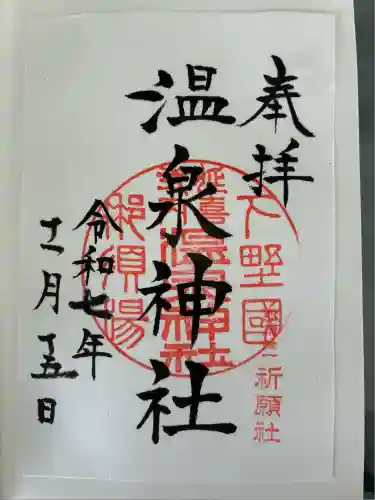 奉拝
下野國
延喜式内
温泉神社
那須湯
祈願社
温泉神社
令和七年
十一月十五日